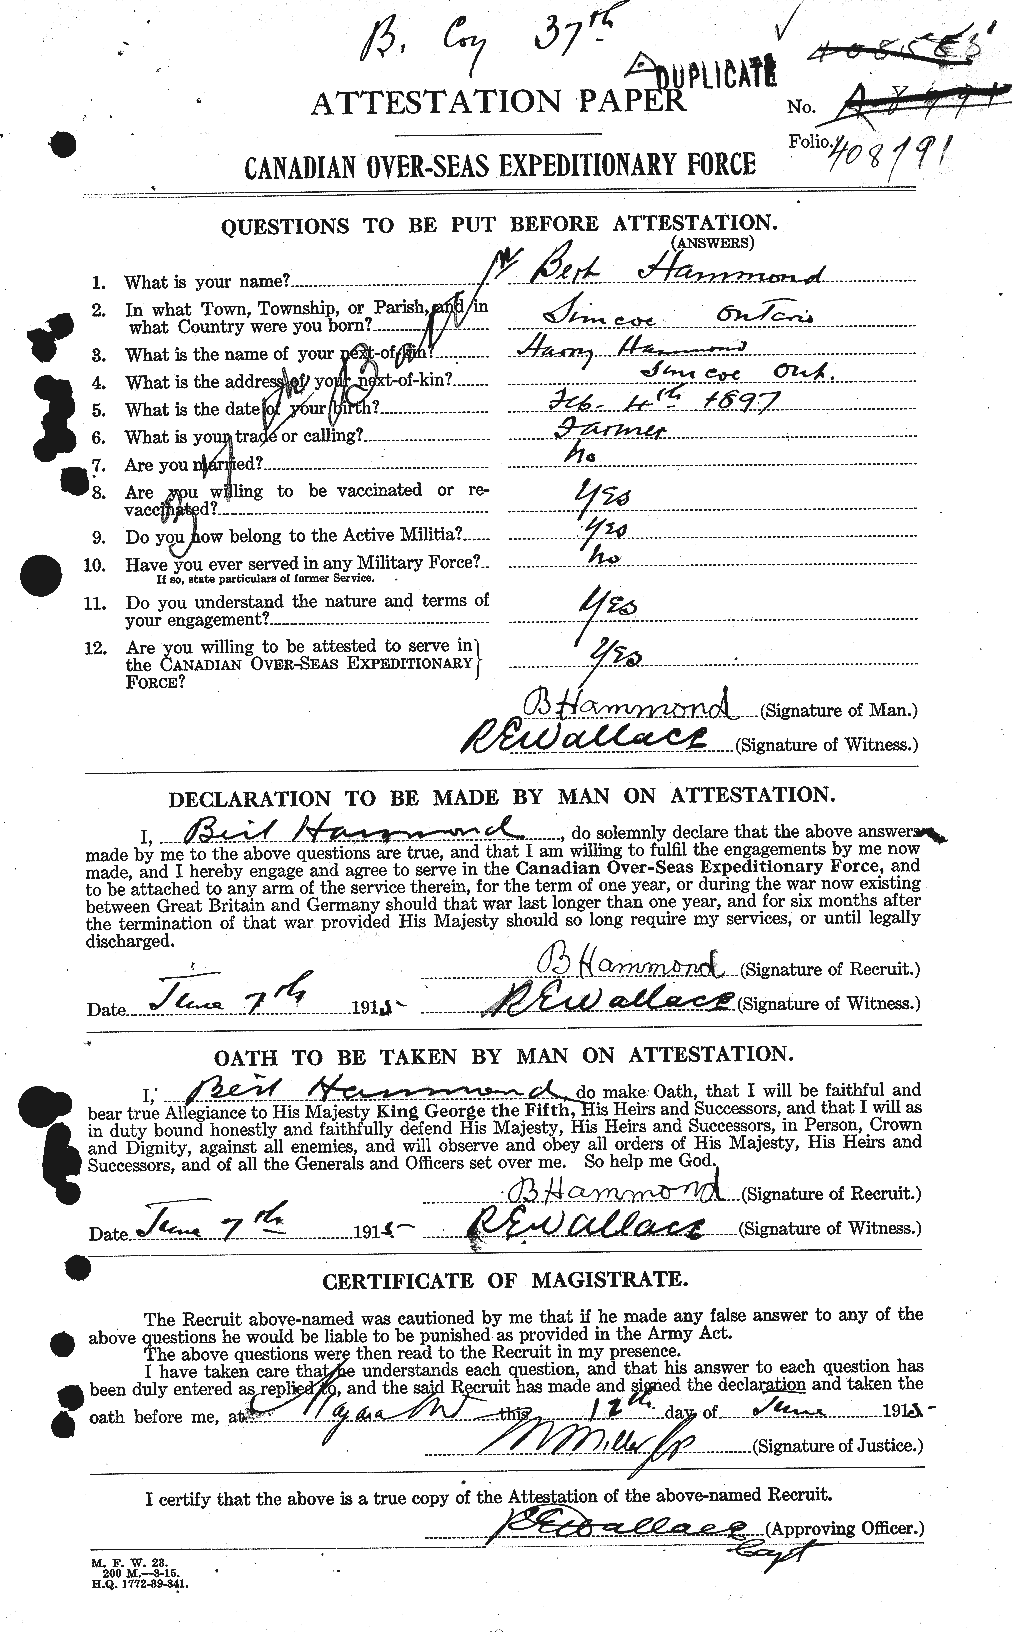 B. Coy 37th
408583
DUPLICATE
ATTESTATION PAPER
No. A8791
Folio. 408791
CANADIAN OVER-SEAS EXPEDITIONARY FORCE
QUESTIONS TO BE PUT BEFORE ATTESTATION.
(ANSWERS)
1. What is your name? Bert Hammond
2. In what Town, Township, or Parish, and in
what Country were you born? Simcoe Ontario
3. What is the name of your next-of-kin? Harry Hammond
4. What is the address of your next-of-kin? Simcoe Ont.
5. What is the date of your birth? Feb. 4th 1897
6. What is your trade or calling? Farmer
7. Are you married? No
8. Are you willing to be vaccinated or re-
vaccinated? Yes
9. Do you now belong to the Active Militia? Yes
10. Have you ever served in any Military Force? No
If so, state particulars of former Service.
11. Do you understand the nature and terms of
your engagement? Yes
12. Are you willing to be attested to serve in
the CANADIAN OVER-SEAS EXPEDITIONARY
FORCE? Yes
B Hammond (Signature of Man.)
R E Wallace (Signature of Witness.)
DECLARATION TO BE MADE BY MAN ON ATTESTATION.
I, Bert Hammond, do solemnly declare that the above answers
made by me to the above questions are true, and that I am willing to fulfil the engagements by me now
made, and I hereby engage and agree to serve in the Canadian Over-Seas Expeditionary Force, and
to be attached to any arm of the service therein, for the term of one year, or during the war now existing
between Great Britain and Germany should that war last longer than one year, and for six months after
the termination of that war provided His Majesty should so long require my services, or until legally
discharged.
B Hammond (Signature of Recruit.)
Date June 7th 1915 R E Wallace (Signature of Witness.)
OATH TO BE TAKEN BY MAN ON ATTESTATION.
I, Bert Hammond do make Oath, that I will be faithful and
bear true Allegiance to His Majesty King George the Fifth, His Heirs and Successors, and that I will as
in duty bound honestly and faithfully defend His Majesty, His Heirs and Successors, in Person, Crown
and Dignity, against all enemies, and will observe and obey all orders of His Majesty, His Heirs and
Successors, and of all the Generals and Officers set over me. So help me God.
B Hammond (Signature of Recruit.)
Date June 7th 1915 R E Wallace (Signature of Witness.)
CERTIFICATE OF MAGISTRATE.
The Recruit above-named was cautioned by me that if he made any false answer to any of the
above questions he would be liable to be punished as provided in the Army Act.
The above questions were then read to the Recruit in my presence.
I have taken care that he understands each question, and that his answer to each question has
been duly entered as replied to, and the said Recruit has made and signed the declaration and taken the
oath before me, at Niagara this 12th day of June 1915
Miller JP (Signature of Justice.)
I certify that the above is a true copy of the Attestation of the above-named Recruit.
R E Wallace (Approving Officer.)
Capt
M. F. W. 23.
200 M.—3-15.
H.Q. 1772-39-341.